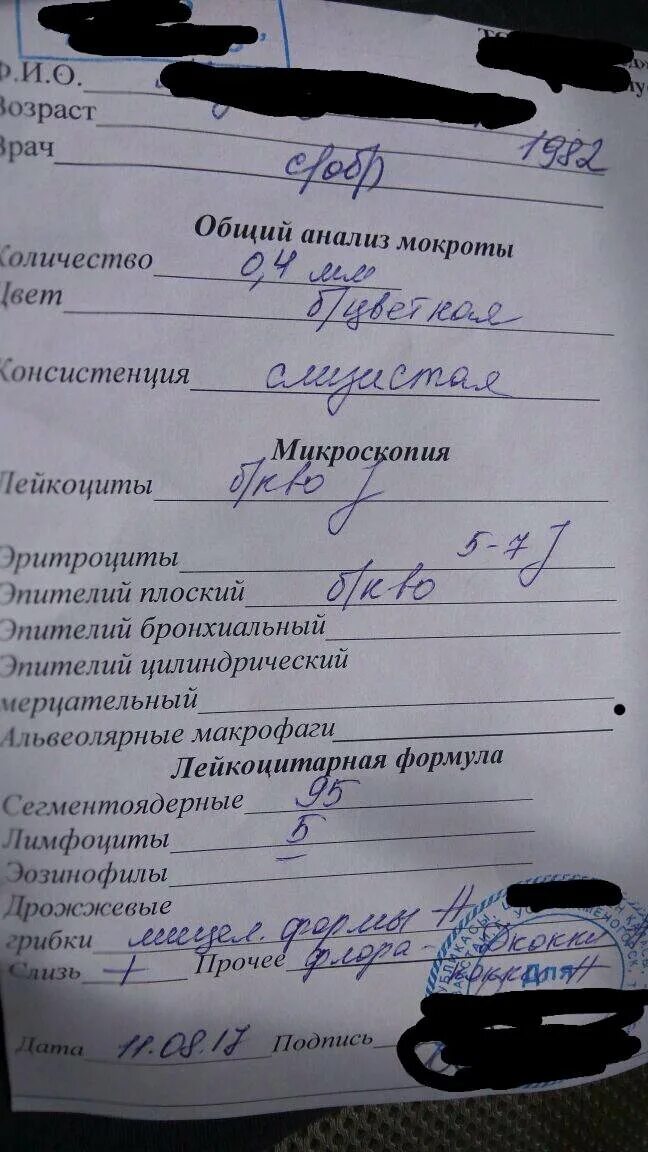 Ф.И.О.
Возраст 1982
Врач
Общий анализ мокроты
Количество 0,4 мм
Цвет б/цветная
Консистенция слизистая
Микроскопия
Лейкоциты б/кво
Эритроциты 5-7
Эпителий плоский б/кво
Эпителий бронхиальный
Эпителий цилиндрический
мерцательный
Альвеолярные макрофаги
Лейкоцитарная формула
Сегментоядерные 95
Лимфоциты 5
Эозинофилы –
Дрожжевые
грибки мицел. формы
Слизь + Прочее флора-
кокки
Для
Дата 11.08.17 Подпись